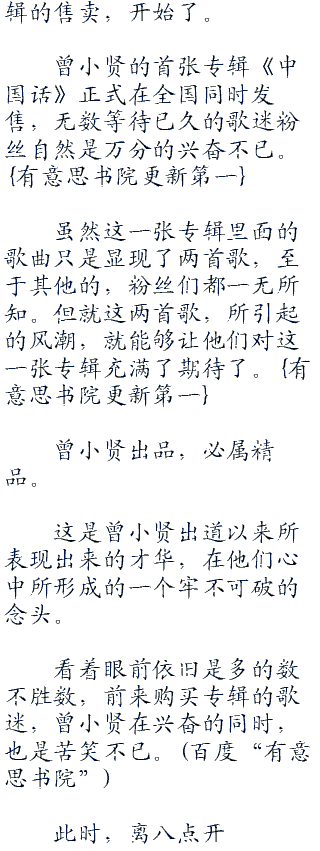 辑的售卖，开始了。
曾小贤的首张专辑《中
国话》正式在全国同时发
售，无数等待已久的歌迷粉
丝自然是万分的兴奋不已。
{有意思书院更新第一}
虽然这一张专辑里面的
歌曲只是显现了两首歌，至
于其他的，粉丝们都一无所
知。但就这两首歌，所引起
的风潮，就能够让他们对这
一张专辑充满了期待了。{有
意思书院更新第一}
曾小贤出品，必属精
品。
这是曾小贤出道以来所
表现出来的才华，在他们心
中所形成的一个牢不可破的
念头。
看着眼前依旧是多的数
不胜数，前来购买专辑的歌
迷，曾小贤在兴奋的同时，
也是苦笑不已。(百度“有意
思书院”)
此时，离八点开